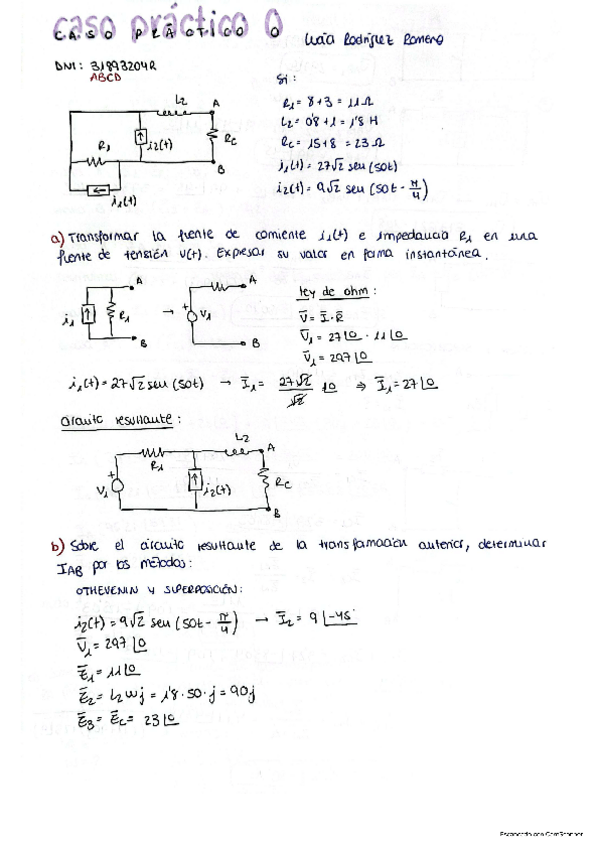 caso práctico 0
CASO PRÁCTICO 0
Lucía Rodríguez Romero
DNI: 31893204R
ABCD
Si:
L2
A
R1
i2(t)
RC
B
i1(t)
R1 = 8+3 = 11Ω
L2 = 0'8 + 1 = 1'8 H
RC = 15+8 = 23Ω
i1(t) = 27√2 sen (50t)
i2(t) = 9√2 sen (50t - π/4)
a) Transformar la fuente de corriente i1(t) e impedancia R1 en una
fuente de tensión v(t). Expresar su valor en forma instantánea.
A
i1
R1
B
→
+
V1
A
B
ley de ohm:
V = I · R
V1 = 27∠0 · 11∠0
V1 = 297∠0
i1(t) = 27√2 sen (50t) → I1 = 27√2/√2 ∠0 ⇒ I1 = 27∠0
Circuito resultante:
L2
A
R1
+
V1
i2(t)
RC
B
b) Sobre el circuito resultante de la transformación anterior, determinar
IAB por los métodos:
OTHEVENIN Y SUPERPOSICIÓN:
i2(t) = 9√2 sen (50t - π/4) → I2 = 9∠-45
V1 = 297∠0
Z1 = 11∠0
Z2 = L2wj = 1'8 · 50 · j = 90j
Z3 = ZC = 23∠0
Escaneado con CamScanner